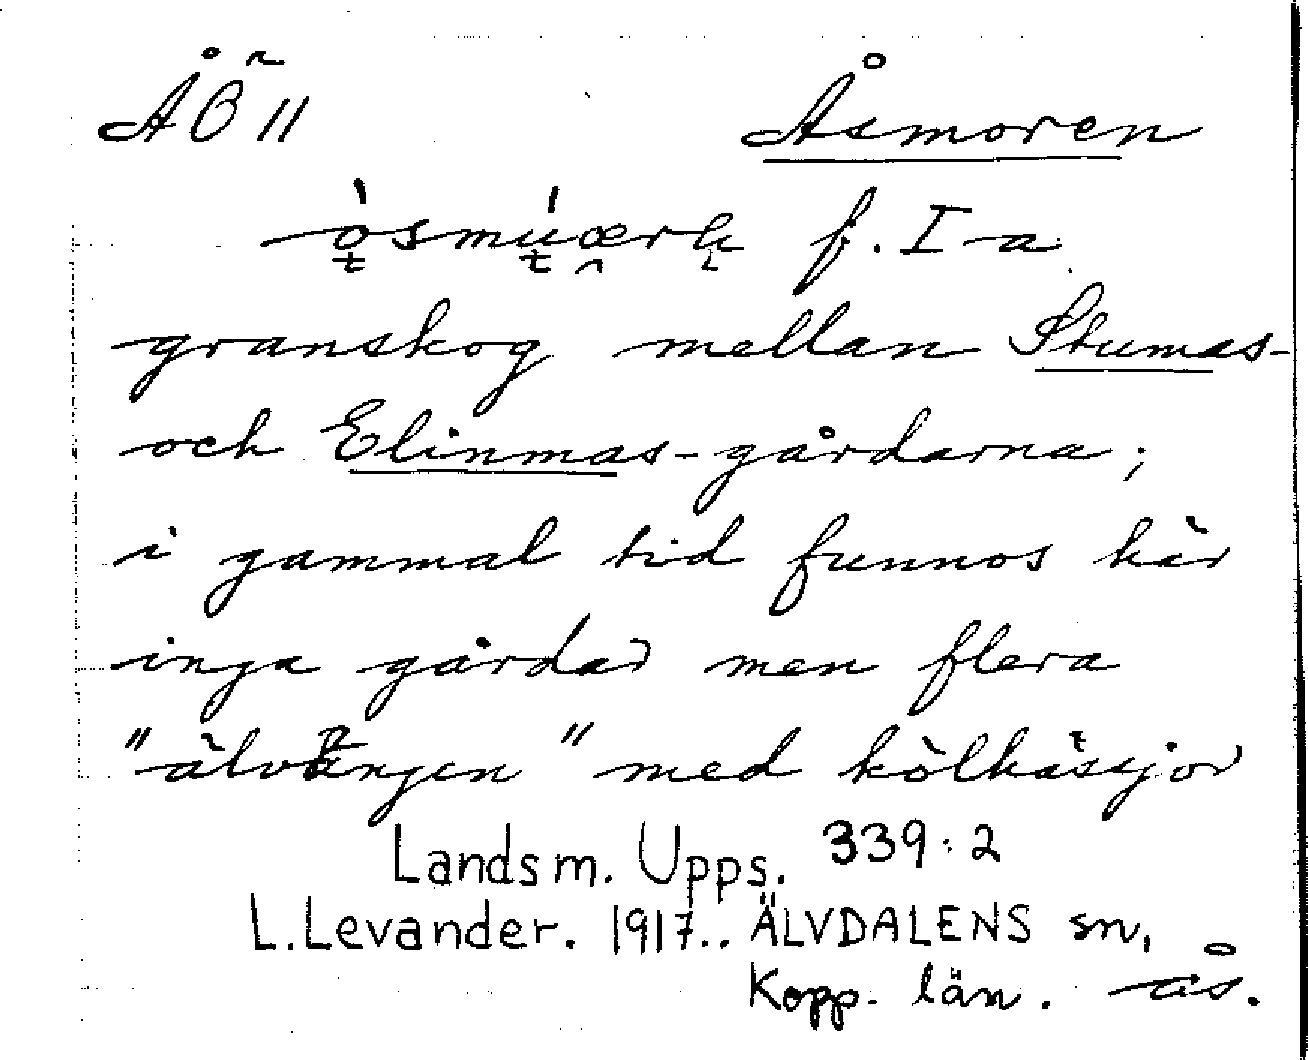 ÅÖ 11 Åsmoren
f. I a
granskog mellan Stumas-
och Elinmas-gårdarna;
i gammal tid funnos här
inga gårdar men flera
"älvängen" med kölhässjor
Landsm. Upps. 339:2
L. Levander. 1917.. ÄLVDALENS sn,
Kopp. län. ås.